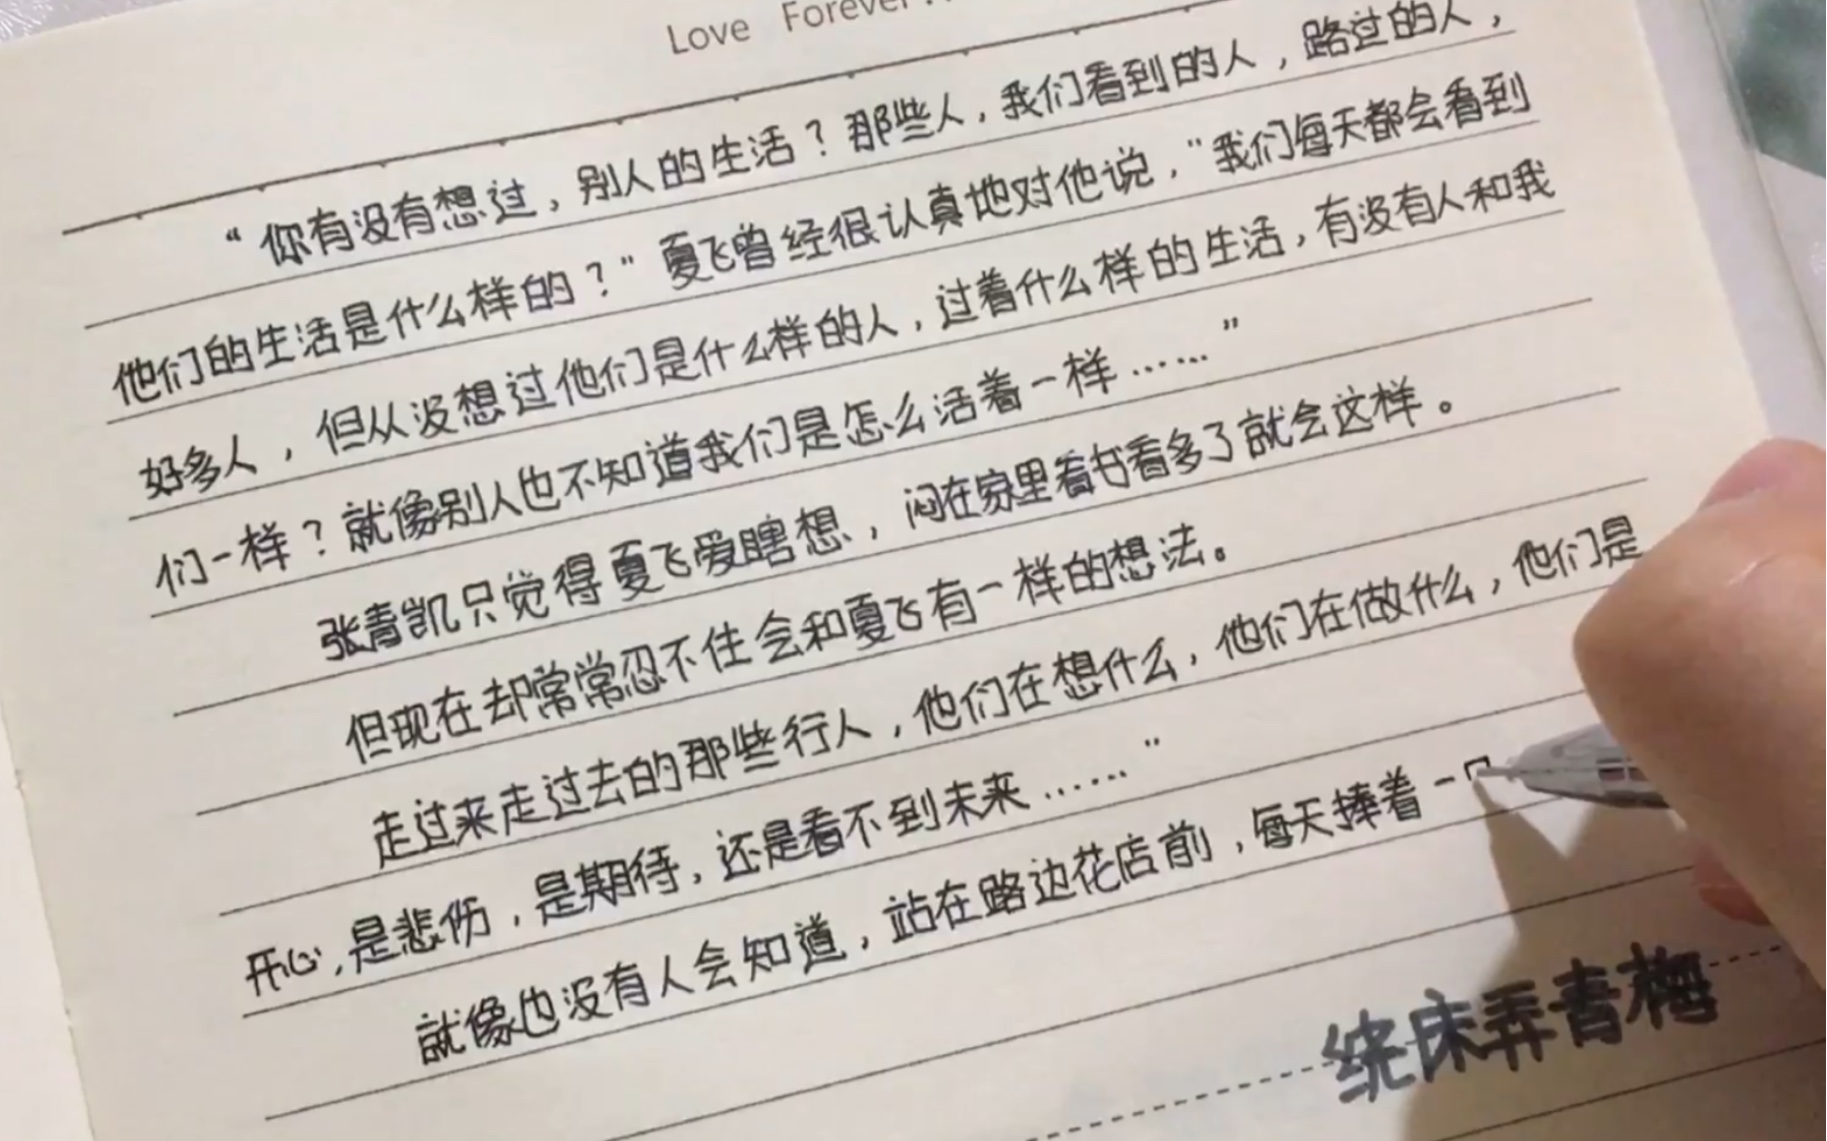 Love Forever
“你有没有想过，别人的生活？那些人，我们看到的人，路过的人，
他们的生活是什么样的？”夏飞曾经很认真地对他说，“我们每天都会看到
好多人，但从没想过他们是什么样的人，过着什么样的生活，有没有人和我
们一样？就像别人也不知道我们是怎么活着一样……”
张青凯只觉得夏飞爱瞎想，闷在家里看书看多了就会这样。
但现在却常常忍不住会和夏飞有一样的想法。
走过来走过去的那些行人，他们在想什么，他们在做什么，他们是
开心，是悲伤，是期待，还是看不到未来……”
就像也没有人会知道，站在路边花店前，每天捧着一
绕床弄青梅